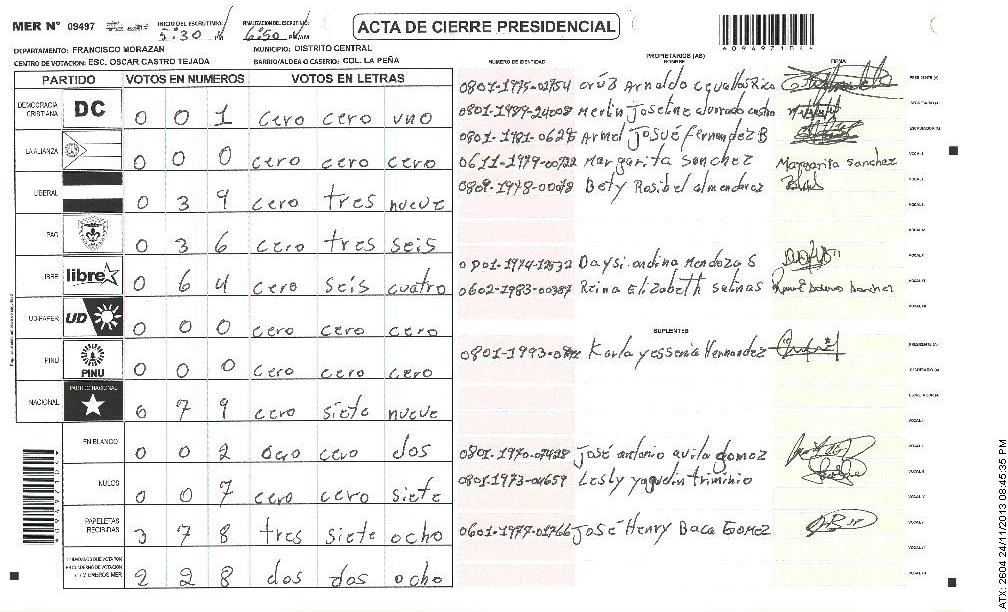 MER N° 09497 INICIO DEL ESCRUTINIO: 5:30 PM FINALIZACION DEL ESCRUTINIO: 6:50 PM/AM ACTA DE CIERRE PRESIDENCIAL
DEPARTAMENTO: FRANCISCO MORAZAN MUNICIPIO: DISTRITO CENTRAL
CENTRO DE VOTACION: ESC. OSCAR CASTRO TEJADA BARRIO/ALDEA O CASERIO: COL. LA PEÑA
PARTIDO VOTOS EN NUMEROS VOTOS EN LETRAS
DEMOCRACIA CRISTIANA DC 0 0 1 cero cero uno
LA ALIANZA 0 0 0 cero cero cero
LIBERAL 0 3 9 cero tres nueve
PAC 0 3 6 cero tres seis
LIBRE libre 0 6 4 cero seis cuatro
UD-FAPER UD 0 0 0 cero cero cero
PINU PINU 0 0 0 cero cero cero
NACIONAL PARTIDO NACIONAL 0 7 9 cero siete nueve
EN BLANCO 0 0 2 cero cero dos
NULOS 0 0 7 cero cero siete
PAPELETAS RECIBIDAS 3 7 8 tres siete ocho
CIUDADANOS QUE VOTARON EN CUADERNO DE VOTACION Y MIEMBROS MER 2 2 8 dos dos ocho
NUMERO DE IDENTIDAD PROPIETARIOS (AS) NOMBRE FIRMA
0801-1975-02754 Arnaldo PRESIDENTE (A)
0801-1989-24008 Merlin Joseline alvarado castro SECRETARIO (A)
0801-1981-0628 Armel Josué fernandez B ESCRUTADOR (A)
0611-1979-00722 Margarita sanchez Margarita sanchez VOCAL I
0809-1978-00078 Bety Rosibel almendarez VOCAL II
0801-1974-12532 Daysi ondina Mendoza S VOCAL V
0602-1983-00387 Reina Elizabeth salinas
SUPLENTES
0801-1993- Karla yessenia Hernandez PRESIDENTE (A)
SECRETARIO (A)
ESCRUTADOR (A)
0801-1970-07428 José antonio avila gomez
0801-1973-04659 Lesly yaquelin triminio
0601-1977-01766 José Henry Baca Gomez
ATX: 2604 24/11/2013 08:45:35 PM